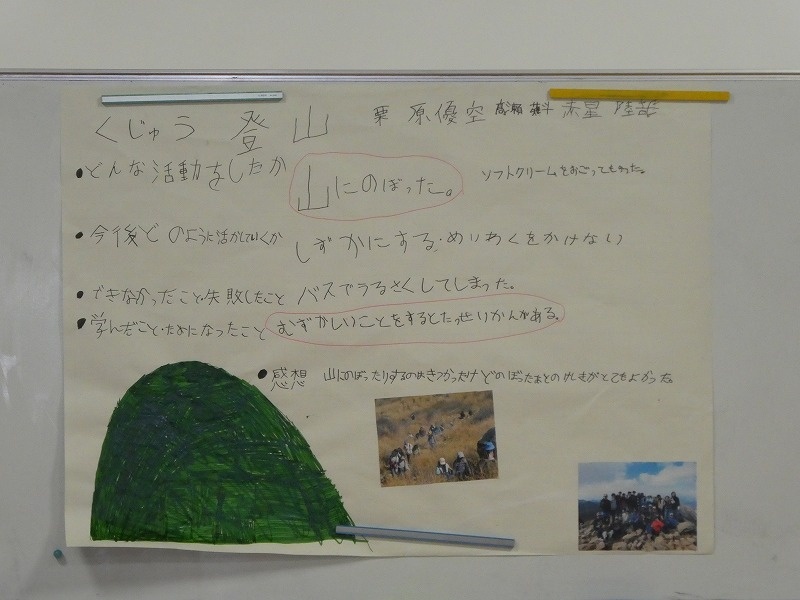 くじゅう 登山 栗原優空 高瀬 雄斗 赤星 陸哉
●どんな活動をしたか 山にのぼった。 ソフトクリームをおごってもらった。
●今後どのように活かしていくか しずかにする・めいわくをかけない
●できなかったこと・失敗したこと バスでうるさくしてしまった。
●学んだこと・ためになったこと むずかしいことをするとたっせいかんがある。
●感想 山にのぼったりするのめきつかったけどのぼったあとのけしきがとてもよかった。